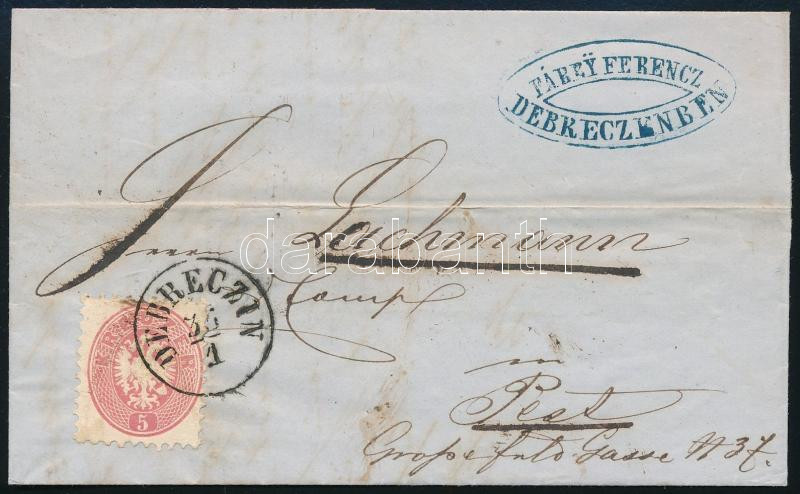 FÁREŸ FERENCZ
DEBRECZENBEN
Herrn Lachmann
Comp
in
Pest
Grossefeld Gasse N 37.
DEBRECZIN
1
5
darabanth